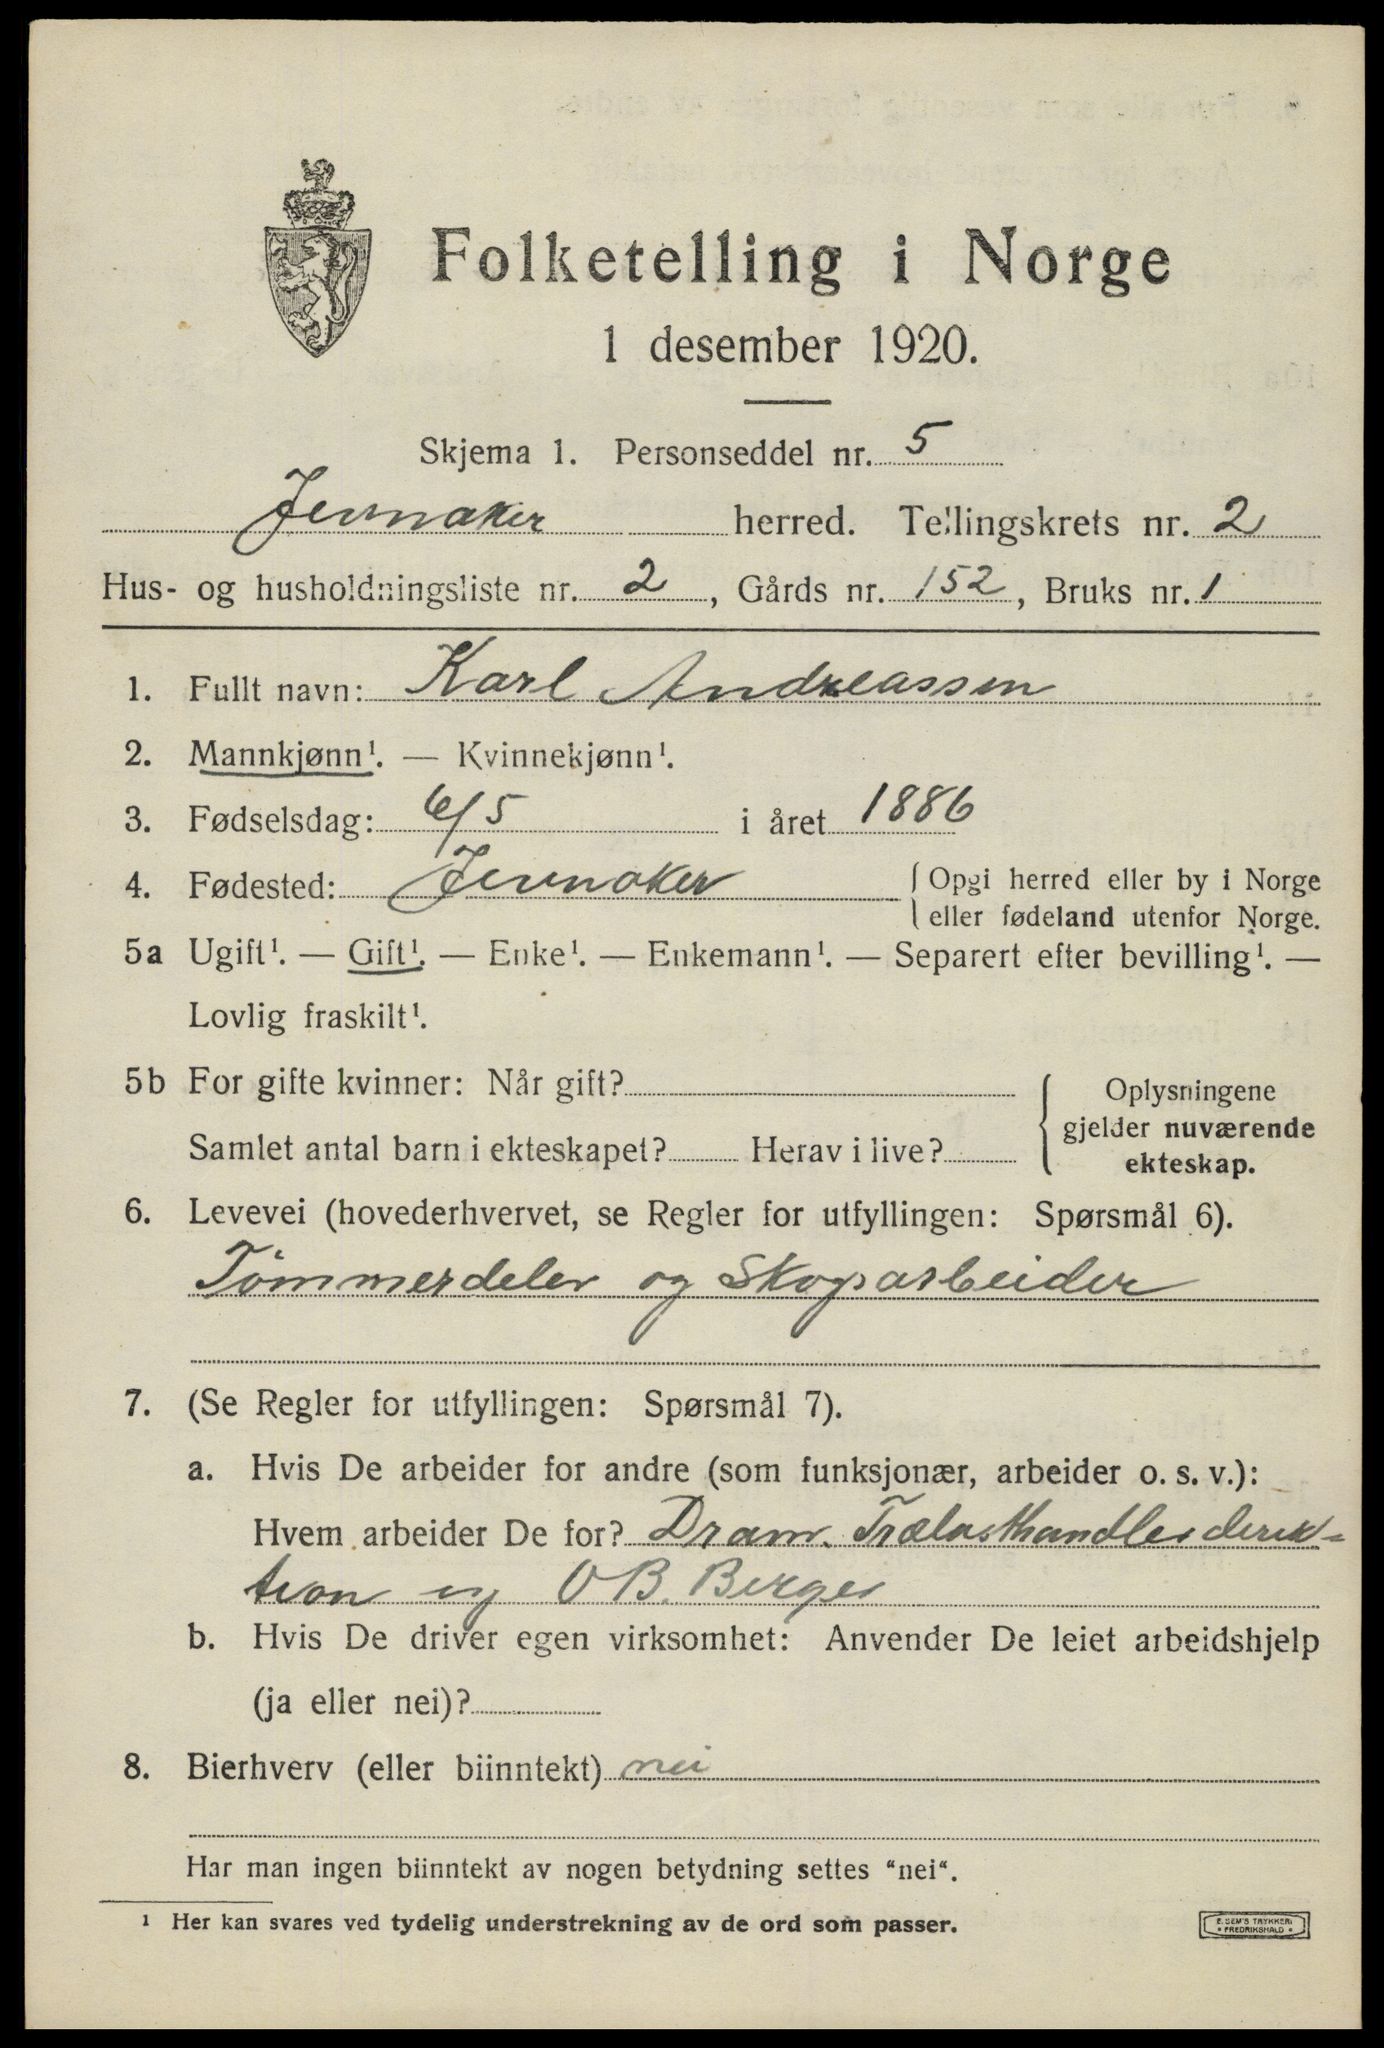 Folketelling i Norge
1 desember 1920.
Skjema 1. Personseddel nr. 5
Jevnaker herred. Tellingskrets nr. 2
Hus- og husholdningsliste nr. 2, Gårds nr. 152, Bruks nr. 1
1. Fullt navn: Karl Andreassen
2. Mannkjønn¹. — Kvinnekjønn¹.
3. Fødselsdag: 6/5 i året 1886
4. Fødested: Jevnaker { Opgi herred eller by i Norge
eller fødeland utenfor Norge.
5a Ugift¹. — Gift¹. — Enke¹. — Enkemann¹. — Separert efter bevilling¹. —
Lovlig fraskilt¹.
5b For gifte kvinner: Når gift? { Oplysningene
gjelder nuværende
Samlet antal barn i ekteskapet? Herav i live? ekteskap.
6. Levevei (hovederhvervet, se Regler for utfyllingen: Spørsmål 6).
Tømmerdeler og Skogsarbeider
7. (Se Regler for utfyllingen: Spørsmål 7).
a. Hvis De arbeider for andre (som funksjonær, arbeider o. s. v.):
Hvem arbeider De for? Dram. Trælasthandler derek-
tion og O B. Berger
b. Hvis De driver egen virksomhet: Anvender De leiet arbeidshjelp
(ja eller nei)?
8. Bierhverv (eller biinntekt) nei
Har man ingen biinntekt av nogen betydning settes "nei".
¹ Her kan svares ved tydelig understrekning av de ord som passer.
E. SEM'S TRYKKERI
FREDRIKSHALD